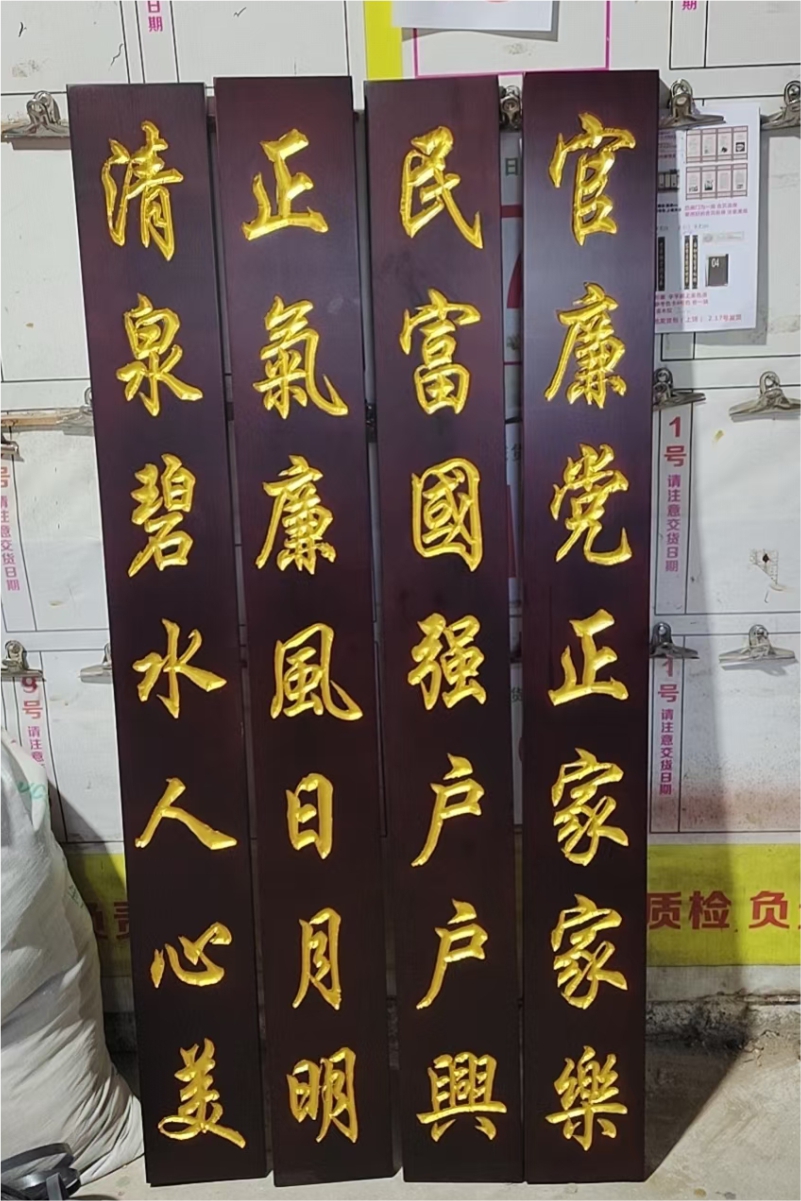 官廉党正家家樂
民富國强户户興
正氣廉風日月明
清泉碧水人心美
1号
请注意交货日期
1号
请注意交货日期
9号
请注意
号
请注意交货日期
质检 负
负责
日期
期
04